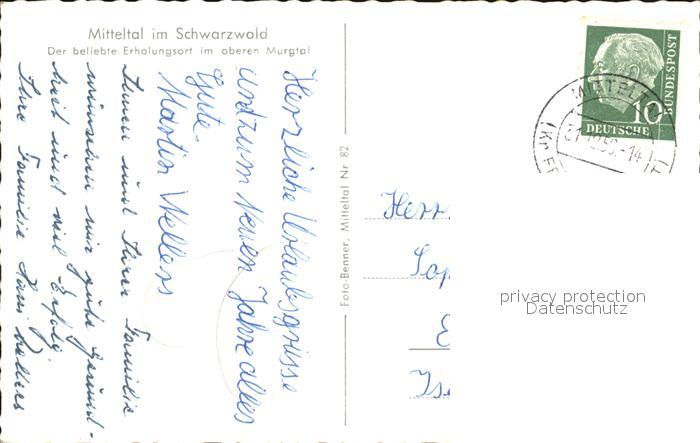 Mitteltal im Schwarzwald
Der beliebte Erholungsort im oberen Murgtal
Herzliche Urlaubsgrüsse
und zum Neuen Jahre alles
Gute.
Martin Wellers
Ihnen und Ihrer Familie
wünschen wir gute Gesund-
heit und viel Erfolg.
Ihre Familie Hans Wellers
Foto-Benner, Mitteltal Nr 82
Herr
Ise
privacy protection
Datenschutz
10
DEUTSCHE
BUNDESPOST
MITTELT